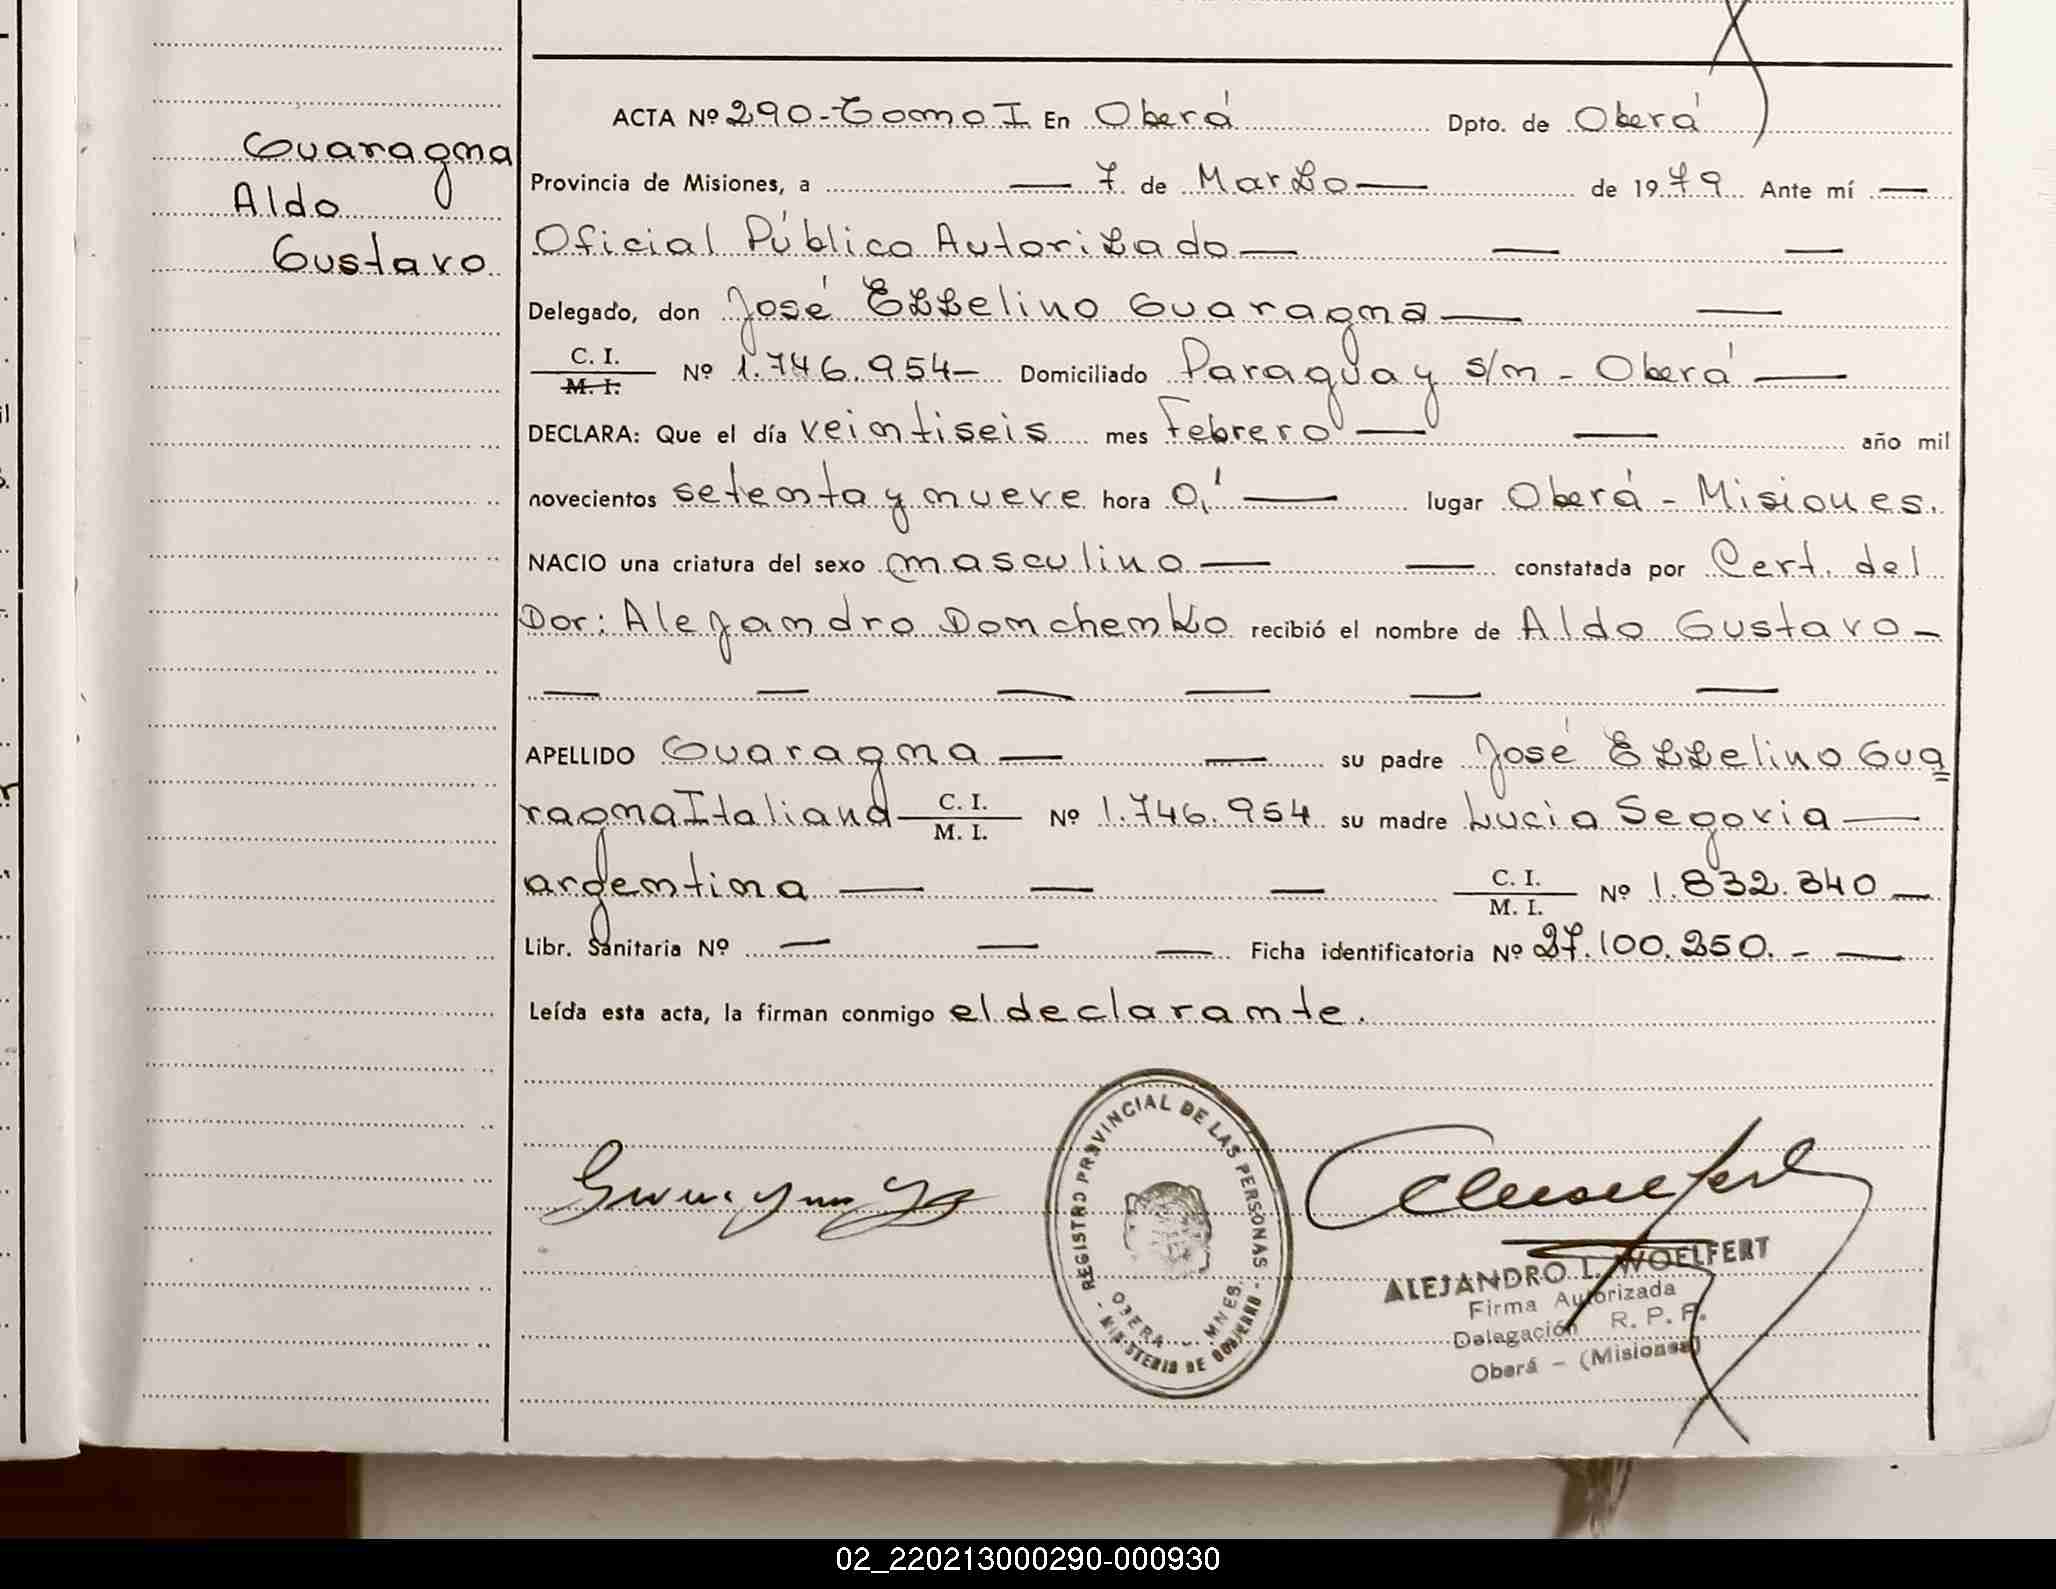 ACTA Nº 290-Tomo I En Oberá Dpto. de Oberá
Guaragna
Aldo
Gustavo
Provincia de Misiones, a — 7 de Marzo — de 1979 Ante mí —
Oficial Público Autorizado — — —
Delegado, don José Ezzelino Guaragna — —
C. I.
M. I. Nº 1.746.954- Domiciliado Paraguay s/n - Oberá —
DECLARA: Que el día veintiseis mes Febrero — — año mil
novecientos setenta y nueve hora 0,1 — lugar Oberá - Misiones.
NACIO una criatura del sexo masculino — — constatada por Cert. del
Dor: Alejandro Donchenko recibió el nombre de Aldo Gustavo -
— — — — — —
APELLIDO Guaragna — — su padre José Ezzelino Gua
ragna Italiana — C. I.
M. I. Nº 1.746.954 su madre Lucia Segovia —
argentina — — — C. I.
M. I. Nº 1.832.340 —
Libr. Sanitaria Nº — — — Ficha identificatoria Nº 27.100.250.- —
Leída esta acta, la firman conmigo el declarante.
REGISTRO PROVINCIAL DE LAS PERSONAS -
MINISTERIO DE GOBIERNO -
OBERA - MNES.
ALEJANDRO L. WOELFERT
Firma Autorizada
Delegación R. P. P.
Oberá - (Misiones)
02_220213000290-000930